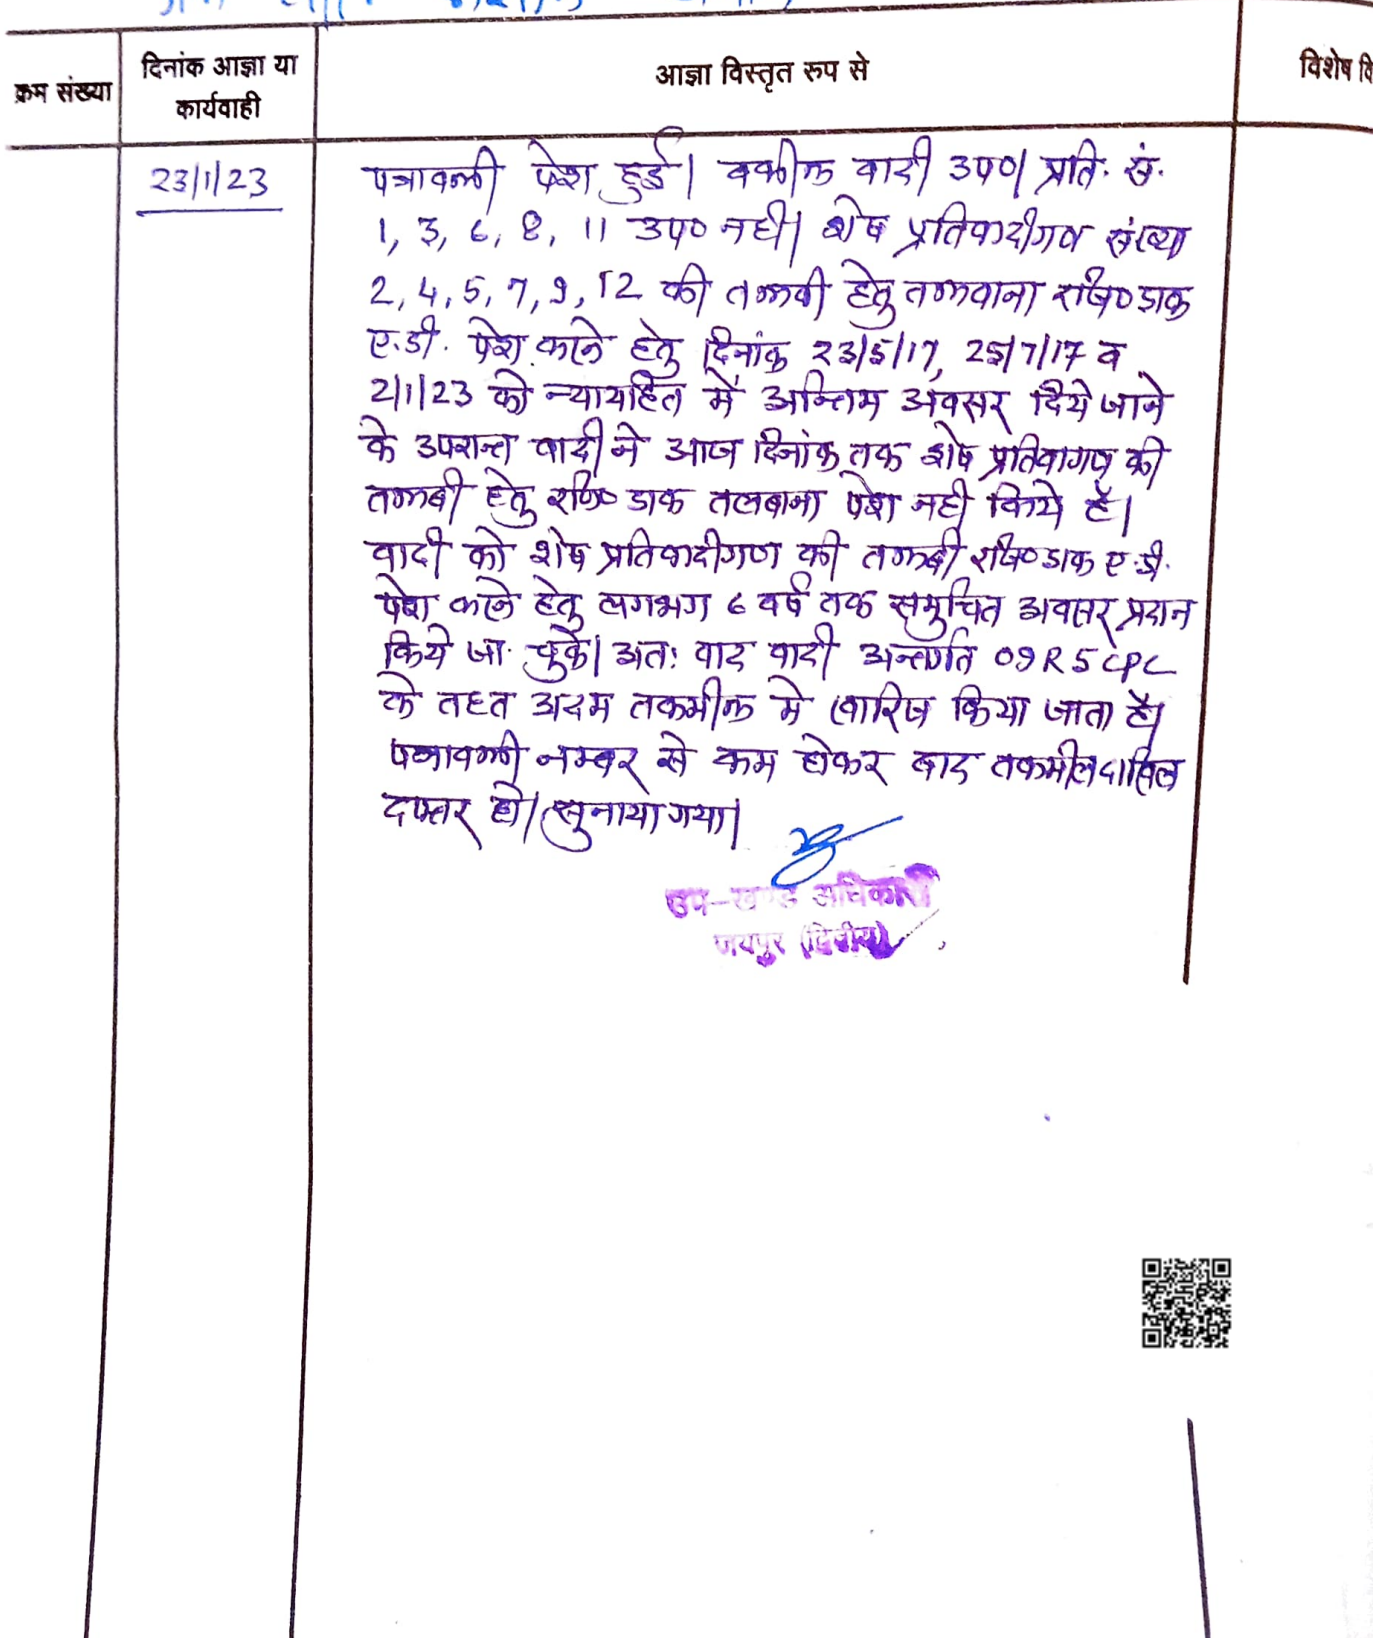 क्रम संख्या
दिनांक आज्ञा या
कार्यवाही
आज्ञा विस्तृत रूप से
विशेष वि
23/1/23
पत्रावली पेश हुई। वकील वादी उप०। प्रति. सं.
1, 3, 6, 8, 11 उप० नहीं। शेष प्रतिवादीगण संख्या
2, 4, 5, 7, 9, 12 की तलबी हेतु तलवाना रजि० डाक
ए.डी. पेश करने हेतु दिनांक 23/5/17, 25/7/17 व
2/1/23 को न्यायहित में अन्तिम अवसर दिये जाने
के उपरान्त वादी ने आज दिनांक तक शेष प्रतिवागण की
तलबी हेतु रजि० डाक तलबाना पेश नही किये है।
वादी को शेष प्रतिवादीगण की तलबी रजि० डाक ए.डी.
पेश करने हेतु लगभग 6 वर्ष तक समुचित अवसर प्रदान
किये जा चुके। अतः वाद वादी अन्तर्गत 09 R 5 CPC
के तहत अदम तकमील मे खारिज किया जाता है।
पत्रावली नम्बर से कम होकर बाद तकमील दाखिल
दफ्तर हो। सुनाया गया।
उप-खण्ड अधिकारी
जयपुर (द्वितीय)